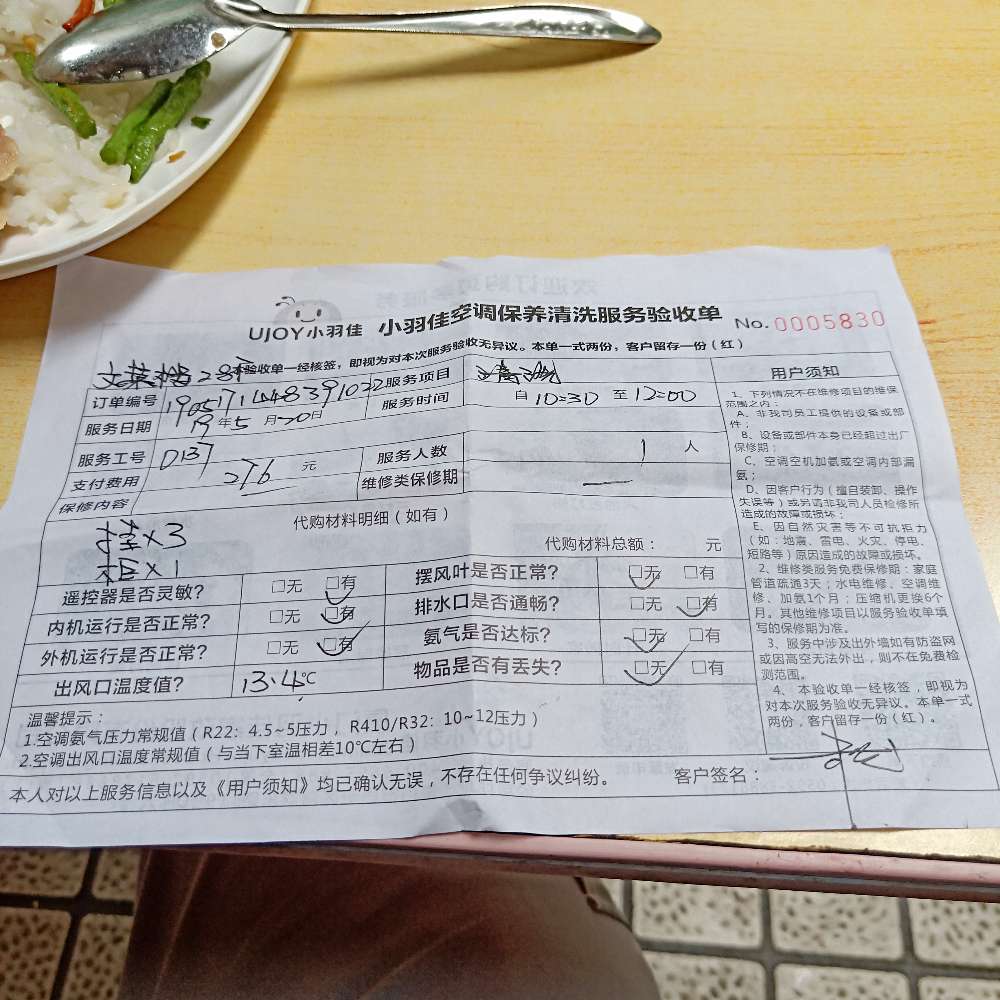 UJOY小羽佳 小羽佳空调保养清洗服务验收单 No.0005830
本验收单一经核签，即视为对本次服务验收无异议。本单一式两份，客户留存一份（红）
订单编号 1905171448391022 服务项目
服务日期 19年5月20日 服务时间 自10:30至12:00
服务工号 D137 服务人数 1 人
支付费用 276 元 维修类保修期 —
保修内容
代购材料明细（如有）
挂x3
柜x1
代购材料总额： 元
遥控器是否灵敏？ □无 □有 摆风叶是否正常？ □无 □有
内机运行是否正常？ □无 □有 排水口是否通畅？ □无 □有
外机运行是否正常？ □无 □有 氨气是否达标？ □无 □有
出风口温度值？ 13.4℃ 物品是否有丢失？ □无 □有
温馨提示：
1.空调氨气压力常规值（R22：4.5~5压力，R410/R32：10~12压力）
2.空调出风口温度常规值（与当下室温相差10℃左右）
本人对以上服务信息以及《用户须知》均已确认无误，不存在任何争议纠纷。 客户签名：
用户须知
1、下列情况不在维修项目的维保
范围之内：
A、非我司员工提供的设备或部
件；
B、设备或部件本身已经超过出厂
保修期；
C、空调空机加氨或空调内部漏
氨；
D、因客户行为（擅自装卸、操作
失误等）或另请非我司人员检修所
造成的故障或损坏；
E、因自然灾害等不可抗拒力
（如：地震、雷电、火灾、停电、
短路等）原因造成的故障或损坏。
2、维修类服务免费保修期：家庭
管道疏通3天；水电维修、空调维
修、加氨1个月；压缩机更换6个
月。其他维修项目以服务验收单填
写的保修期为准。
3、服务中涉及出外墙如有防盗网
或因高空无法外出，则不在免费检
测范围。
4、本验收单一经核签，即视为
对本次服务验收无异议。本单一式
两份，客户留存一份（红）。